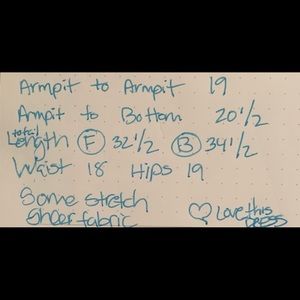 Armpit to Armpit 19
Armpit to Bottom 20 1/2
total Length (F) 32 1/2 (B) 34 1/2
Waist 18 Hips 19
Some stretch
sheer fabric
♡ Love this
DRESS